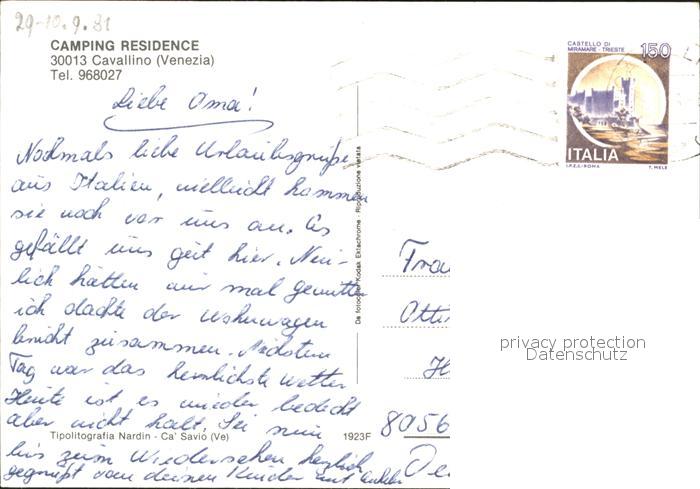 29-10.9.81
CAMPING RESIDENCE
30013 Cavallino (Venezia)
Tel. 968027
Liebe Oma!
Nochmals liebe Urlaubsgrüße
aus Italien, vielleicht kommen
sie noch vor uns an. Es
gefällt uns gut hier. Neu-
lich hatten wir mal gewitter
ich dachte der Wohnwagen
bricht zusammen. Nächsten
Tag war das herrlichste Wetter
Heute ist es wieder bedeckt
aber nicht kalt. Sei nun
bis zum Wiedersehen herzlich
gegrüßt von deinen Kinder und Enkel
Tipolitografia Nardin - Ca' Savio (Ve)
1923F
Da fotocolor Kodak Ektachrome - Riproduzione vietata
CASTELLO DI
MIRAMARE - TRIESTE
150
ITALIA
I.P.Z.S.-ROMA
T. MELE
Frau
Otti
H
8056
privacy protection
Datenschutz